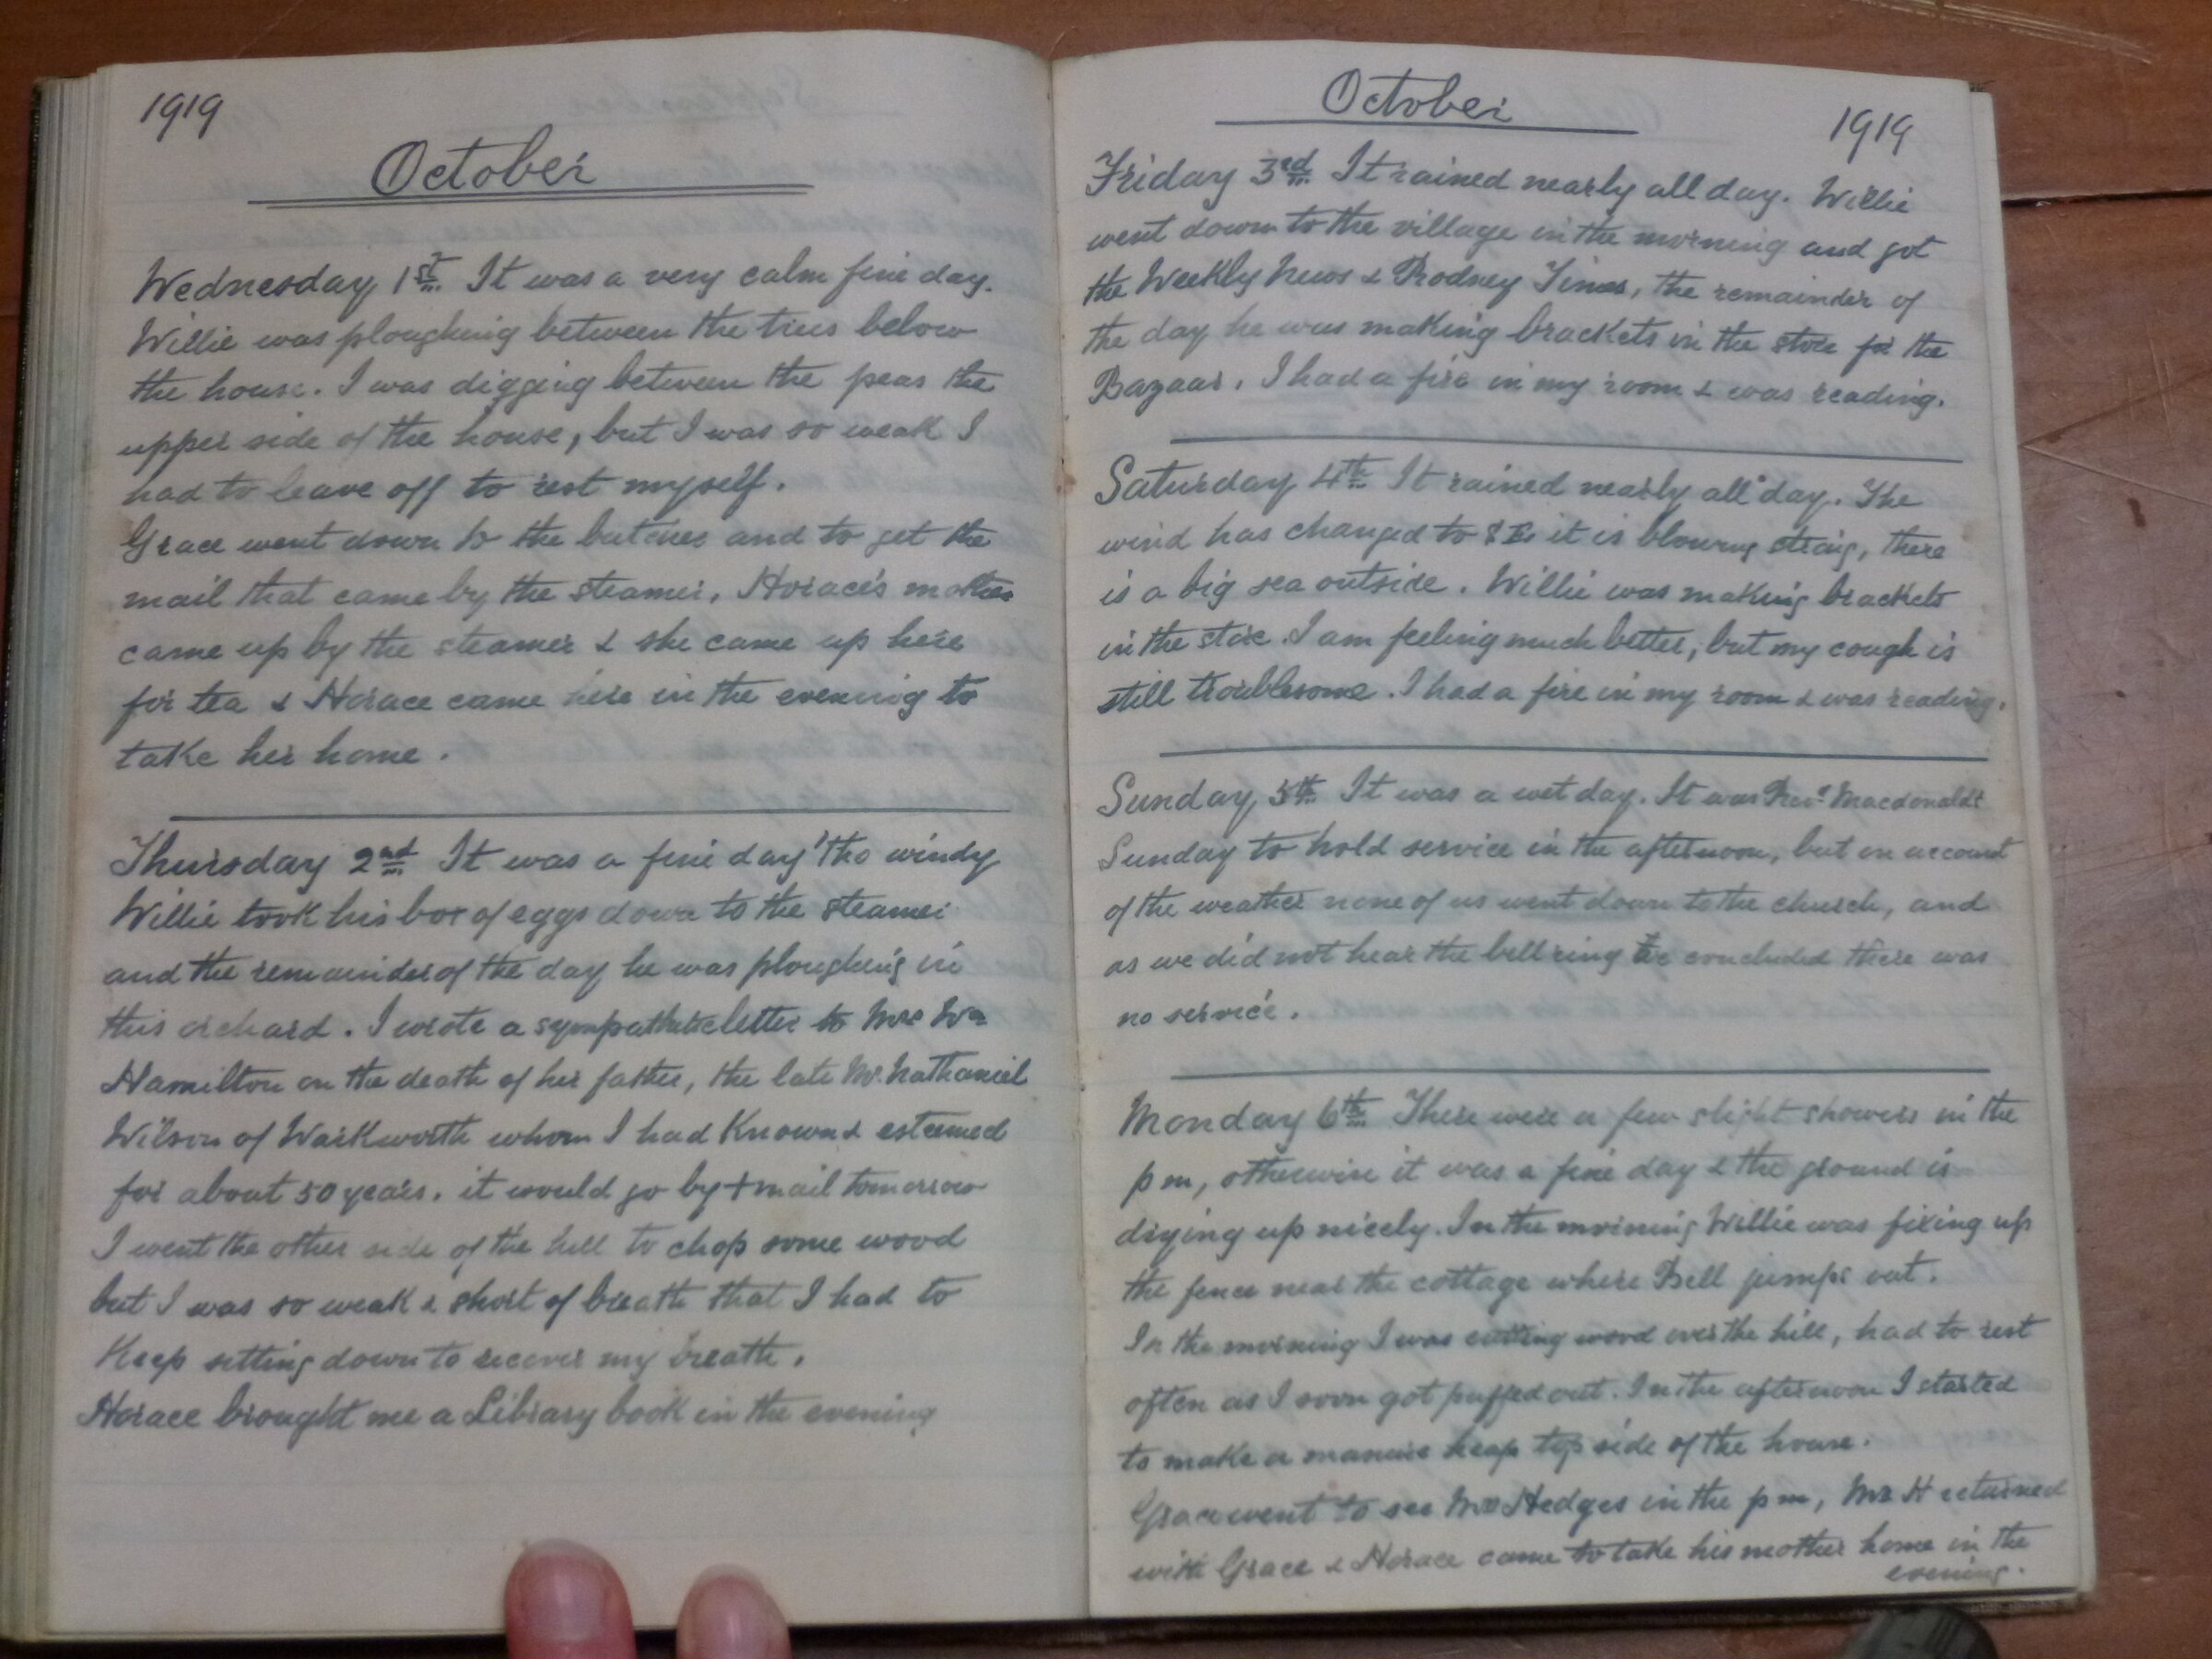 1919
October
Wednesday 1st. It was a very calm fine day.
Willie was ploughing between the trees below
the house. I was digging between the peas the
upper side of the house, but I was so weak I
had to leave off to rest myself.
Grace went down to the butcher and to get the
mail that came by the steamer. Horace's mother
came up by the steamer & she came up here
for tea & Horace came here in the evening to
take her home.
Thursday 2nd. It was a fine day 'tho windy
Willie took his box of eggs down to the steamer
and the remainder of the day he was ploughing in
this orchard. I wrote a sympathetic letter to Mrs Wm
Hamilton on the death of her father, the late Mr. Nathaniel
Wilson of Warkworth whom I had Known & esteemed
for about 50 years. it would go by + mail tomorrow
I went the other side of the hill to chop some wood
but I was so weak & short of breath that I had to
Keep setting down to recover my breath.
Horace brought me a Library book in the evening
October
1919
Friday 3rd. It rained nearly all day. Willie
went down to the village in the morning and got
the Weekly News & Rodney Times, the remainder of
the day he was making brackets in the store for the
Bazaar. I had a fire in my room & was reading.
Saturday 4th. It rained nearly all day. The
wind has changed to S E. it is blowing strong, there
is a big sea outside. Willie was making brackets
in the store. I am feeling much better, but my cough is
still troublesome. I had a fire in my room & was reading.
Sunday 5th. It was a wet day. It was Revd Macdonalds
Sunday to hold service in the afternoon, but on account
of the weather none of us went down to the church, and
as we did not hear the bell ring we concluded there was
no service.
Monday 6th. There were a few slight showers in the
p m, otherwise it was a fine day & the ground is
drying up nicely. In the morning Willie was fixing up
the fence near the cottage where Bell jumps out.
In the morning I was cutting wood over the hill, had to rest
often as I soon got puffed out. In the afternoon I started
to make a manure heap top side of the house.
Grace went to see Mrs Hedges in the p m, Mrs H returned
with Grace & Horace came to take his mother home in the
evening.